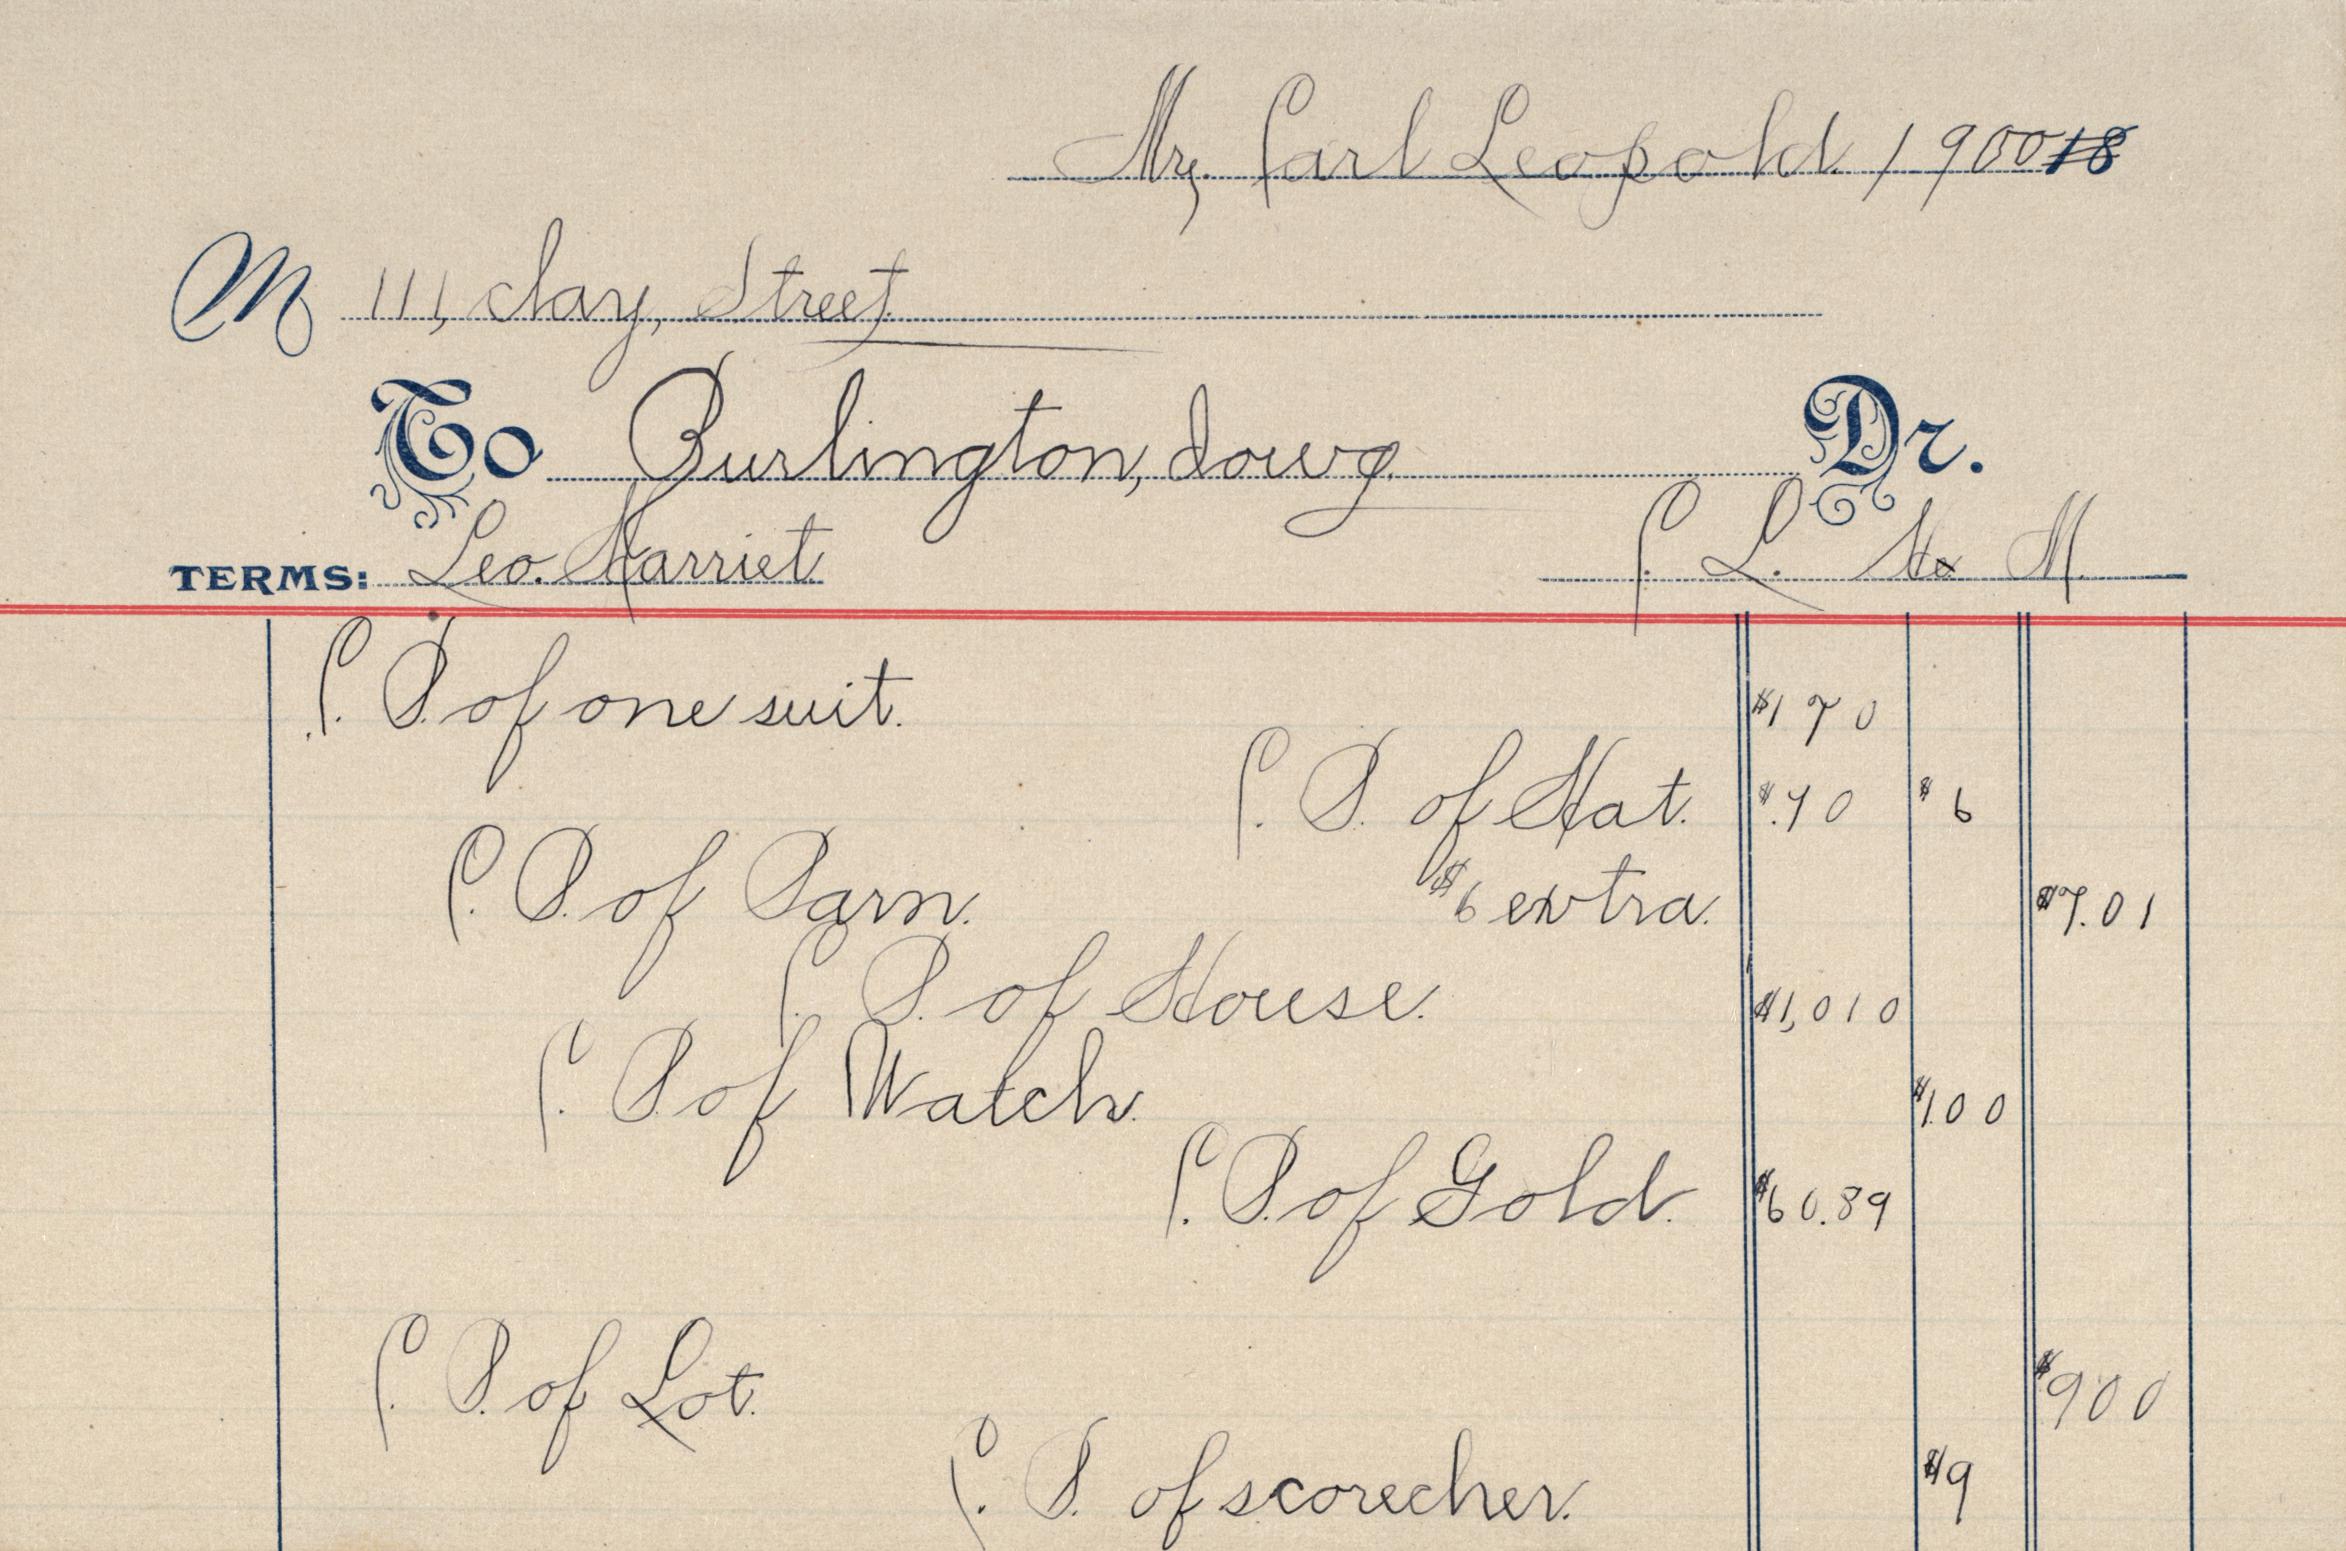 Mr. Carl Leopold. 190018
M 111, Clay, Street.
To Burlington, Iowa. Dr.
TERMS: Leo. Harriet C. L. M.
C. P. of one suit. $170
C. P. of Hat. $.90 $6
C. P. of Barn. $6 extra. $7.01
C. P. of House. $1,010
C. P. of Watch. $100
C. P. of Gold. $60.89
C. P. of Lot. $900
C. P. of scorecher. $9